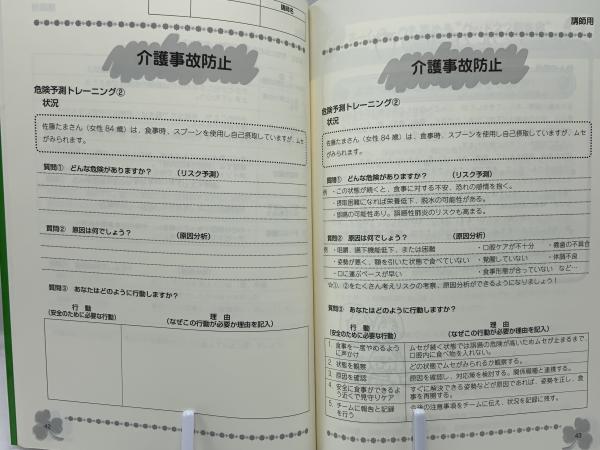 講師名
介護事故防止
危険予測トレーニング②
状況
佐藤たまさん（女性84歳）は、食事時、スプーンを使用し自己摂取していますが、ムセ
がみられます。
質問① どんな危険がありますか？ （リスク予測）
質問② 原因は何でしょう？ （原因分析）
質問③ あなたはどのように行動しますか？
行 動
（安全のために必要な行動）
理 由
（なぜこの行動が必要か理由を記入）
42
講師用
介護事故防止
危険予測トレーニング②
状況
佐藤たまさん（女性84歳）は、食事時、スプーンを使用し自己摂取していますが、ムセ
がみられます。
質問① どんな危険がありますか？ （リスク予測）
例 ・この状態が続くと、食事に対する不安、恐れの感情を抱く。
・摂取困難になれば栄養低下、脱水の可能性がある。
・誤嚥の可能性あり。誤嚥性肺炎のリスクも高まる。
質問② 原因は何でしょう？ （原因分析）
例 ・咀嚼、嚥下機能低下、または困難 ・口腔ケアが不十分 ・義歯の不具合
・姿勢が悪く、顎を引いた状態で食べていない ・覚醒していない ・体調不良
・口に運ぶペースが早い ・食事形態が合っていない など…
☆①、②をたくさん考えリスクの考察、原因分析ができるようになりましょう！
質問③ あなたはどのように行動しますか？
行 動
（安全のために必要な行動）
理 由
（なぜこの行動が必要か理由を記入）
1. 食事を一度やめるよう
に声かけ
ムセが続く状態では誤嚥の危険が高いためムセが止まるまで、
口腔内に食べ物を入れない。
2. 状態を観察
どの状態でムセがみられるか観察する。
3. 原因を確認
原因を確認し、対応策を検討する。関係職種と連携する。
4. 安全に食事ができるよ
う近くで見守りケア
すぐに解決できる姿勢などが原因であれば、姿勢を正し、食
事を再開する。
5. チームに報告と記録
を行う
今後の注意事項をチームに伝え、状況を記録に残す。
43